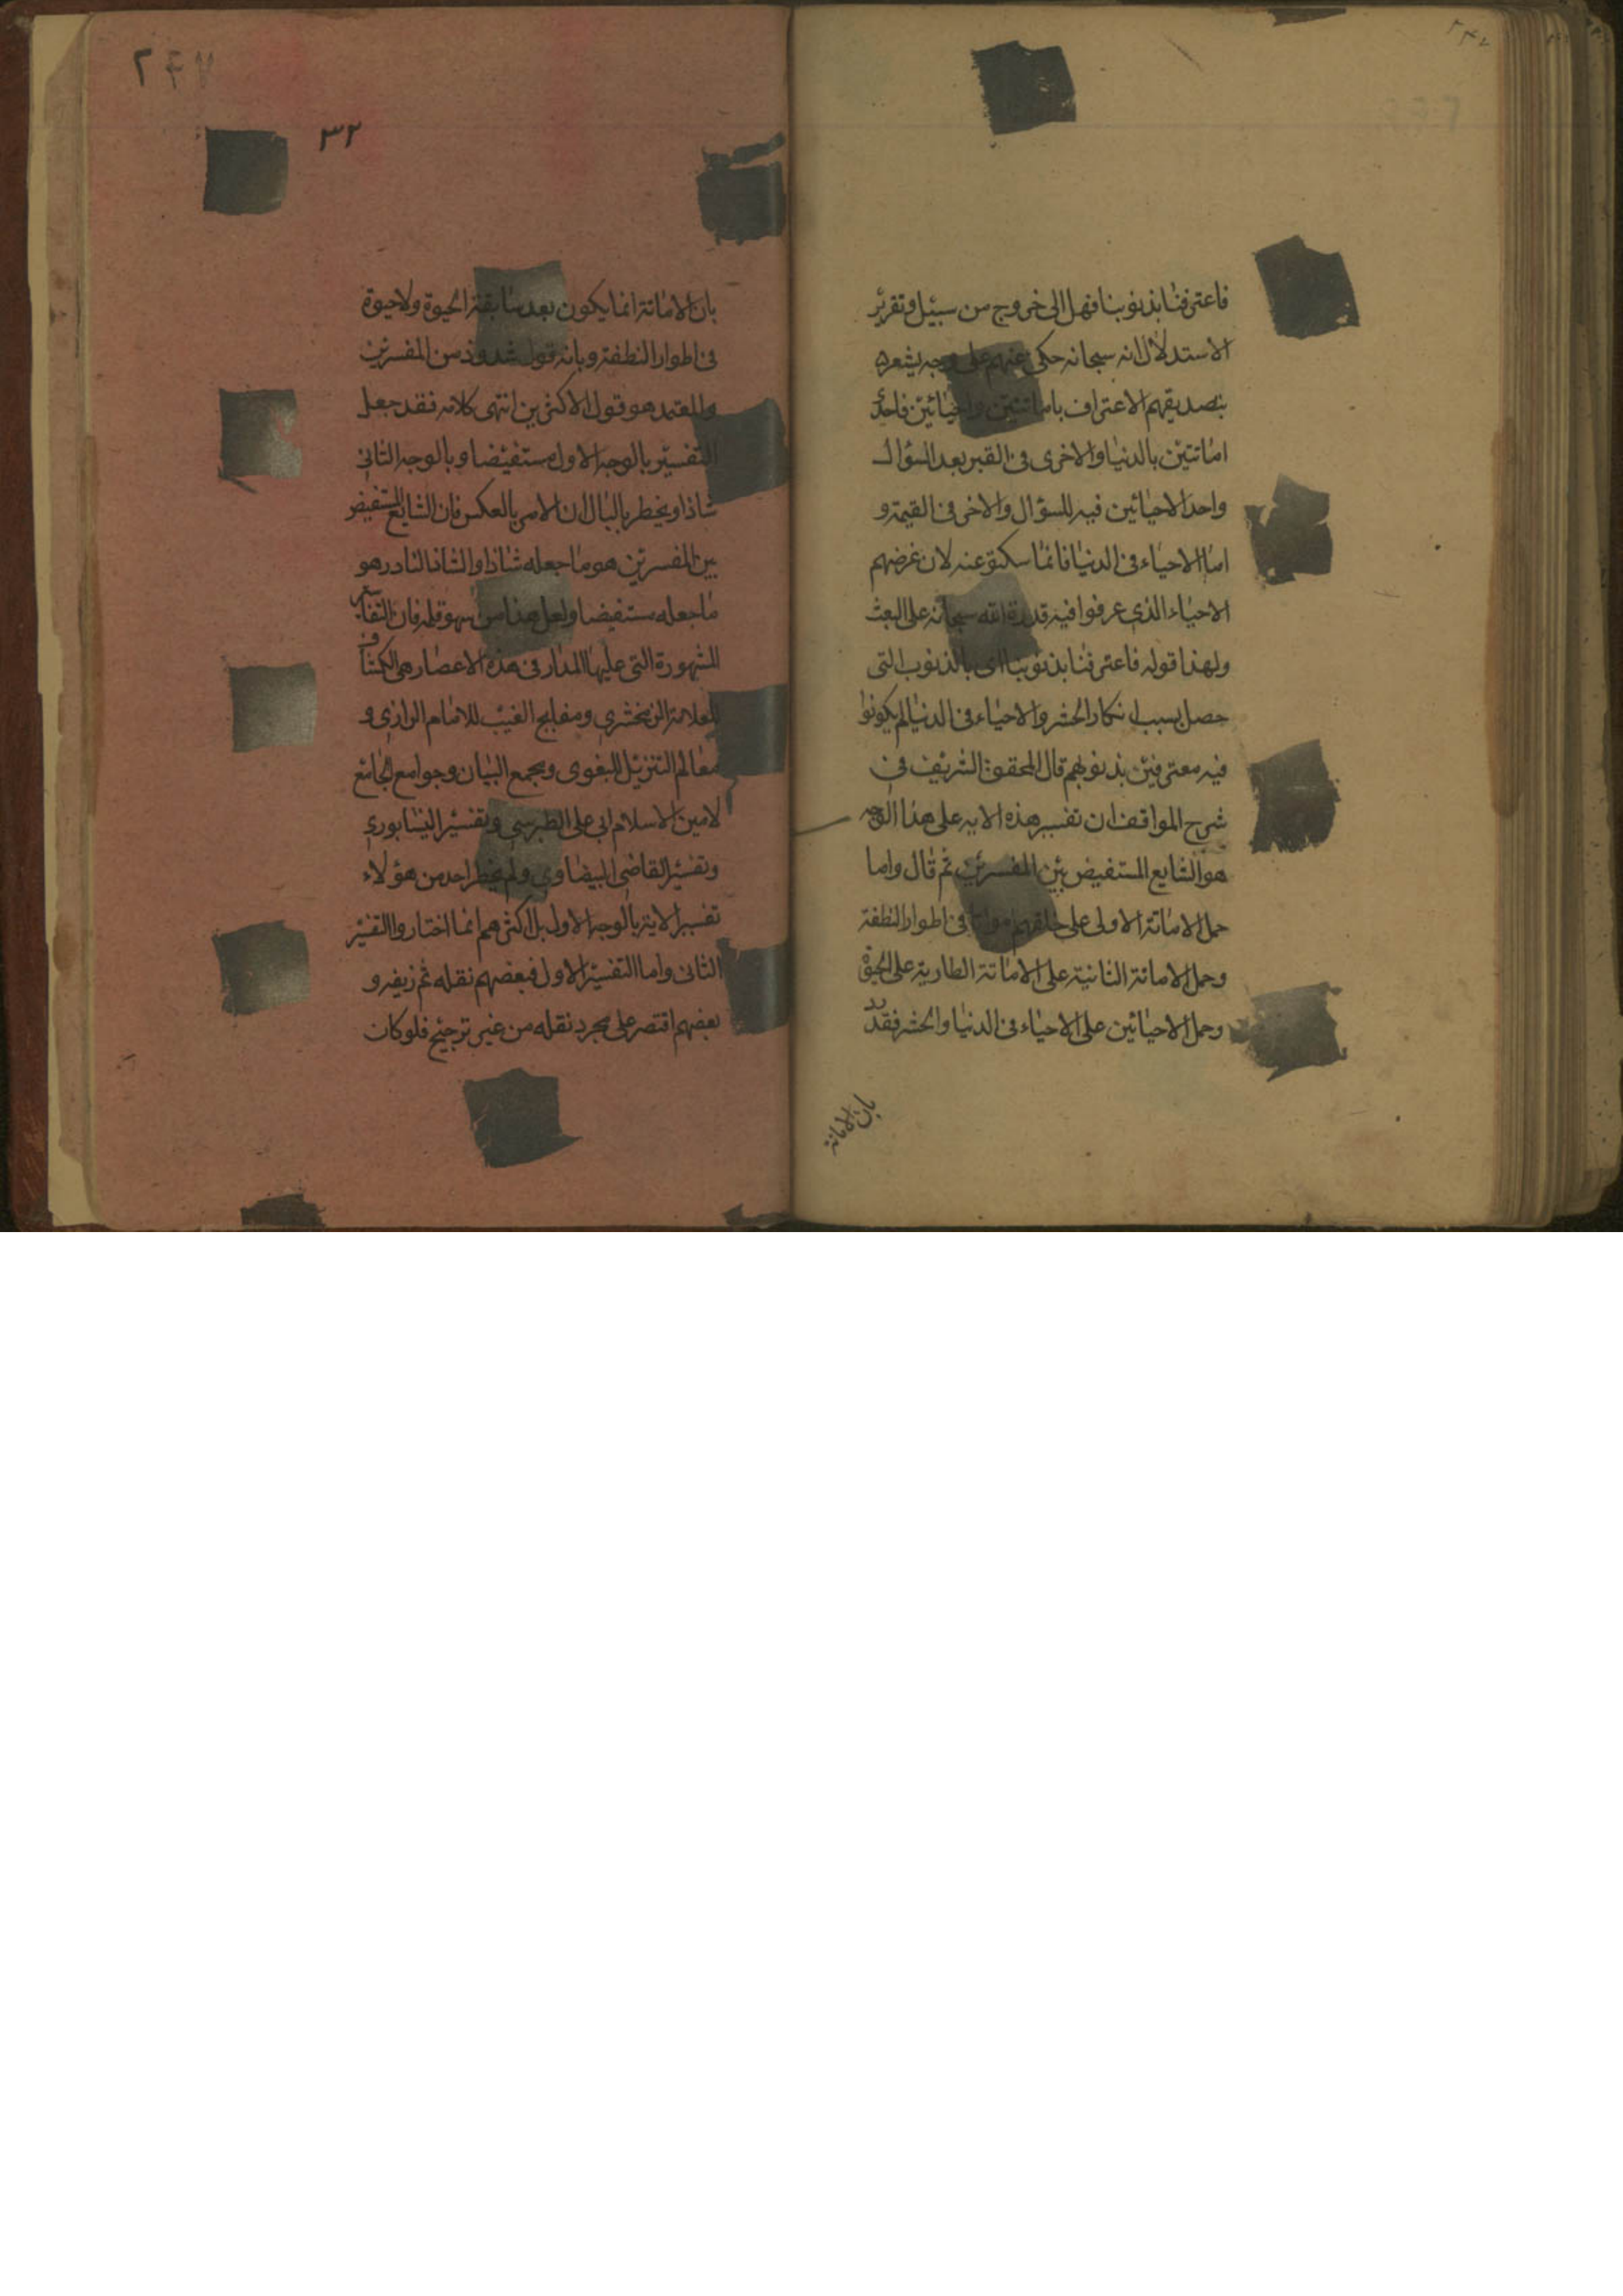 فاعترفنا بذنوبنا فهل الى خروج من سبيل وتقرير
الاستدلال انه سبحانه حكى عنهم على وجه يشعر
بتصديقهم الاعتراف باماتتين واحيائين فاحدى
اماتتين بالدنيا والاخرى فى القبر بعد السؤال
واحد الاحيائين فيه للسؤال والاخر فى القيمة و
اما الاحياء فى الدنيا فانما سكتوا عنه لان غرضهم
الاحياء الذى عرفوا فيه قدرة الله سبحانه على البعث
ولهذا قوله فاعترفنا بذنوبنا اى بالذنوب التى
حصل بسبب انكار الحشر والاحياء فى الدنيا لم يكونوا
فيه معترفين بذنوبهم قال المحقق الشريف فى
شرح المواقف ان تفسير هذه الايه على هذا الوجه
هو الشايع المستفيض بين المفسرين ثم قال واما
حمل الاماتة الاولى على خلقهم امواتا فى اطوار النطفة
وحمل الاماتة الثانية على الاماتة الطارية على الحيوة
وحمل الاحيائين على الاحياء فى الدنيا والحشر فقد رد
بان الاماتة
٣٢
بان الاماتة انما يكون بعد سابقة الحيوة ولاحيوة
فى اطوار النطفة وبانه قول شذوذ من المفسرين
والمعتمد هو قول الاكثرين انتهى كلامه فقد جعل
التفسير بالوجه الاول مستفيضا وبالوجه الثانى
شاذا ويخطر بالبال ان الامر بالعكس فان الشايع المستفيض
بين المفسرين هو ما جعله شاذا والشاذ النادر هو
ما جعله مستفيضا ولعل هذا من سهو قلمه فان التفاسير
المشهورة التى عليها المدار فى هذه الاعصار هى الكشاف
للعلامة الزمخشرى ومفاتيح الغيب للامام الرازى و
معالم التنزيل للبغوى ومجمع البيان وجوامع الجامع
لامين الاسلام ابى على الطبرسى وتفسير النيشابورى
وتفسير القاضى البيضاوى ولم يختر احد من هؤلاء
تفسير الاية بالوجه الاول بل اكثرهم انما اختاروا التفسير
الثانى واما التفسير الاول فبعضهم نقله ثم زيفه و
بعضهم اقتصر على مجرد نقله من غير ترجيح فلو كان